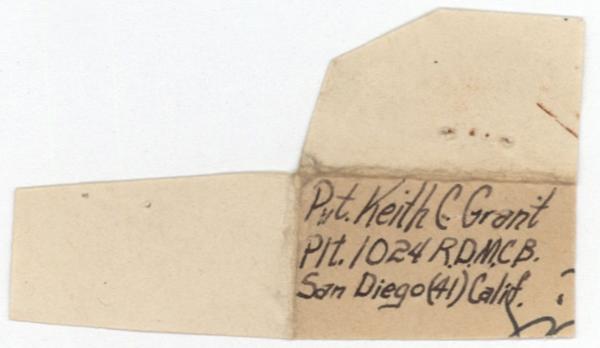 Pvt. Keith C. Grant
Plt. 1024 R.D.M.C.B.
San Diego (41) Calif.